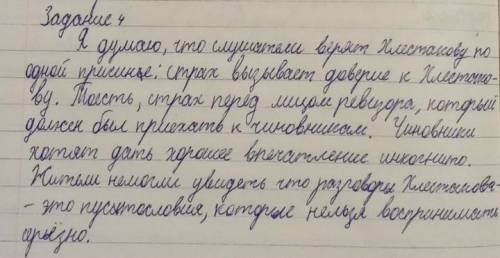 Задание 4
Я думаю, что слушатели верят Хлестакову по
одной причине: страх вызывает доверие к Хлестако-
ву. Тоесть, страх перед лицом ревизора, который
должен был приехать к чиновникам. Чиновники
хотят дать хорошее впечатление инкогнито.
Жители немогли увидеть что разговоры Хлестакова-
- это пустословия, которые нельзя воспринимать
серьёзно.